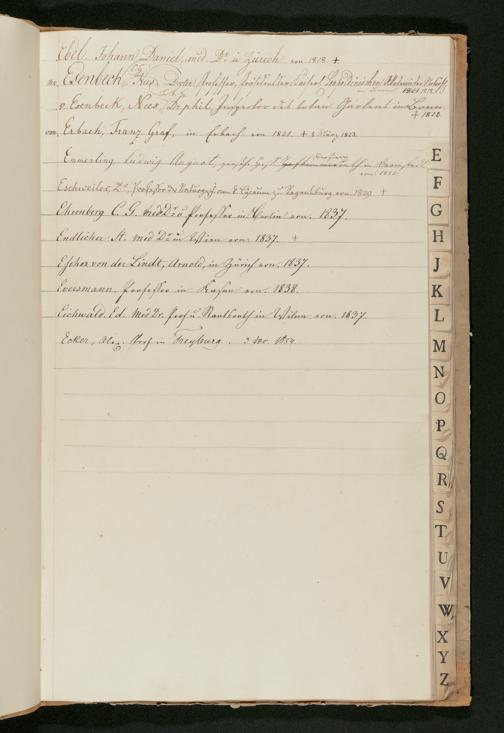 Ebel, Johann Daniel, med. Dr. u Zürich von 1818. +
von Esenbeck, Nees Doctor, Professor, Präsident der Kaiserl. Leopoldinischen
in Bonn 1818
v. Esenbeck, Nees Dr. phil. Inspector des botan. Gartens in Bonn
+ 1838
von Erbach, Franz Graf, in Erbach von 1821. + 8 März 1823
Emmerling, Ludwig August,
Eschweiler, Dr., Professor der Naturgesch. am k. Lyceum zu Regensburg von 1829. +
Ehrenberg C. G. med Dr. u Professor in Berlin von 1837.
Endlicher St. med Dr. in Wien von 1837. +
Escher von der Lindt, Arnold, in Zürich von 1837.
Eversmann, Professor in Kasan von 1838.
Eichwald. Ed. Med Dr. Prof. u. Staatsrath in Wilna von 1837.
Ecker, Alex. Prof in Freyburg. 2 Dec. 1854.
E
F
G
H
J
K
L
M
N
O
P
Q
R
S
T
U
V
W
X
Y
Z